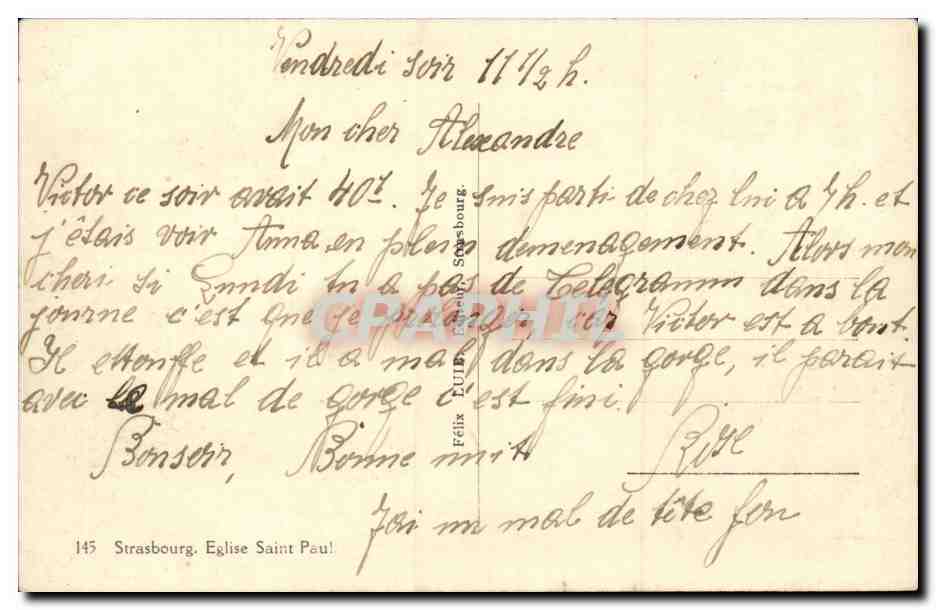 Vendredi soir 11 1/2 h.
Mon cher Alexandre
Victor ce soir avait 40⁷. Je suis parti de chez lui a 7h. et
j'étais voir Anna en plein demenagement. Alors mon
cheri si Lundi tu a pas de Telegramm dans la
journe c'est que je prolonge, car Victor est a bout.
Il ettouffe et il a mal dans la gorge, il parait
avec le mal de gorge c'est fini.
Bonsoir, Bonne nuit Rose
J'ai un mal de tête fou
145 Strasbourg. Eglise Saint Paul
Félix LUIB, Strasbourg.
CPAPHIL